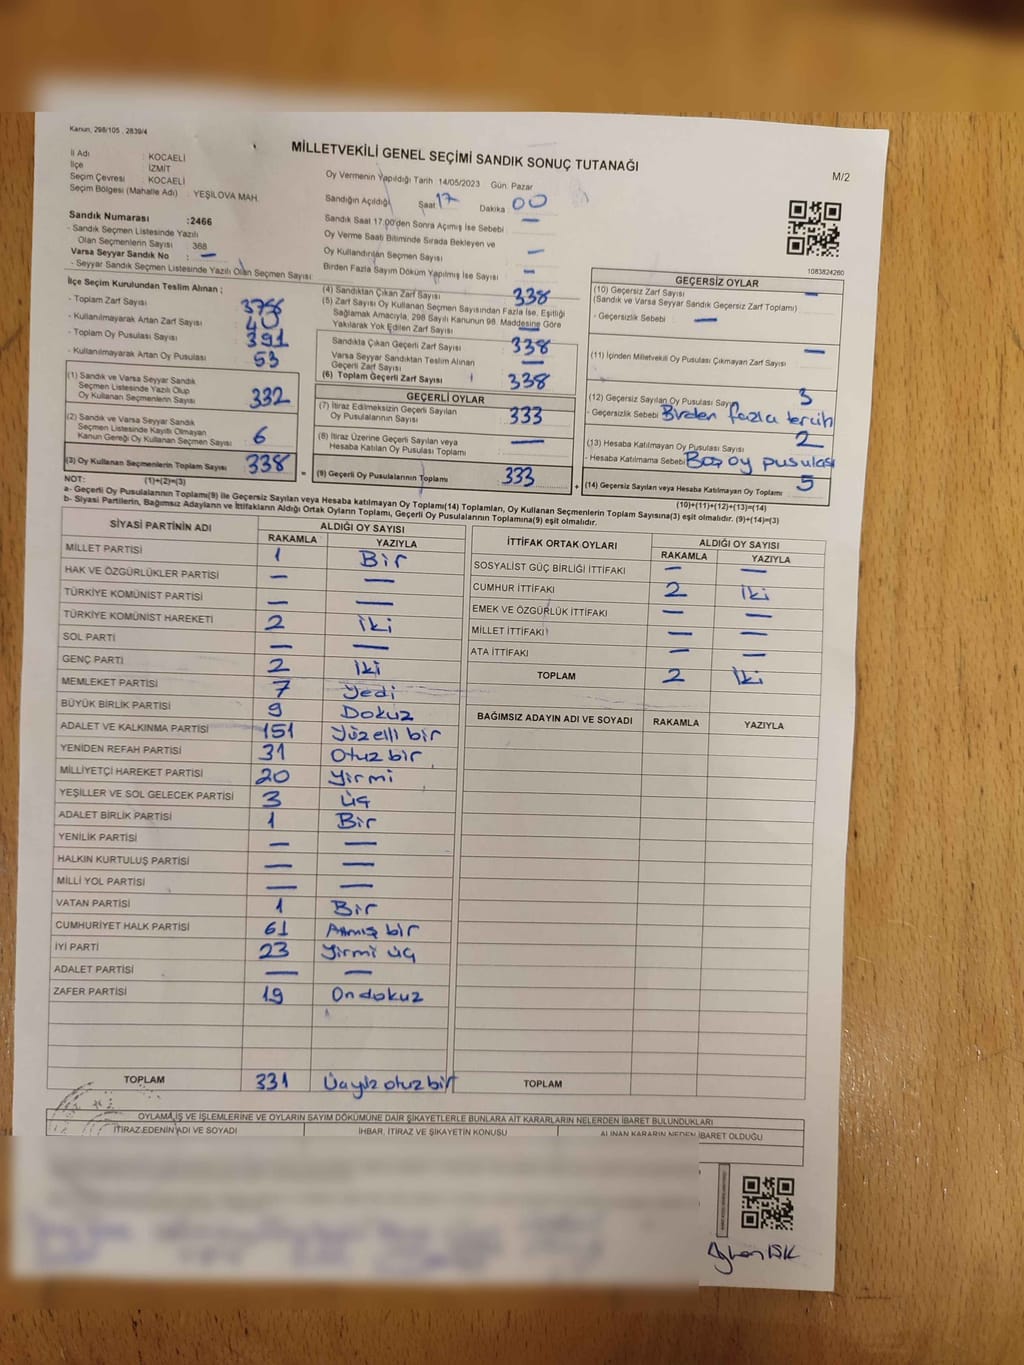 Kanun, 298/105 , 2839/4
MİLLETVEKİLİ GENEL SEÇİMİ SANDIK SONUÇ TUTANAĞI
M/2
İl Adı : KOCAELİ
İlçe İZMİT
Seçim Çevresi : KOCAELİ
Seçim Bölgesi (Mahalle Adı) : YEŞİLOVA MAH.
Sandık Numarası :2466
- Sandık Seçmen Listesinde Yazılı
Olan Seçmenlerin Sayısı : 368
Varsa Seyyar Sandık No : —
- Seyyar Sandık Seçmen Listesinde Yazılı Olan Seçmen Sayısı:
Oy Vermenin Yapıldığı Tarih 14/05/2023 Gün: Pazar
Sandığın Açıldığı Saat 17 Dakika 00
Sandık Saat 17.00'den Sonra Açımış İse Sebebi : —
Oy Verme Saati Bitiminde Sırada Bekleyen ve
Oy Kullandırılan Seçmen Sayısı : —
Birden Fazla Sayım Döküm Yapılmış İse Sayısı : —
1083824260
İlçe Seçim Kurulundan Teslim Alınan ;
- Toplam Zarf Sayısı
- Kullanılmayarak Artan Zarf Sayısı : 40
- Toplam Oy Pusulası Sayısı : 391
- Kullanılmayarak Artan Oy Pusulası : 53
(1) Sandık ve Varsa Seyyar Sandık
Seçmen Listesinde Yazılı Olup
Oy Kullanan Seçmenlerin Sayısı : 332
(2) Sandık ve Varsa Seyyar Sandık
Seçmen Listesinde Kayıtlı Olmayan
Kanun Gereği Oy Kullanan Seçmen Sayısı : 6
(3) Oy Kullanan Seçmenlerin Toplam Sayısı : 338
(4) Sandıktan Çıkan Zarf Sayısı : 338
(5) Zarf Sayısı Oy Kullanan Seçmen Sayısından Fazla İse, Eşitliği
Sağlamak Amacıyla, 298 Sayılı Kanunun 98. Maddesine Göre
Yakılarak Yok Edilen Zarf Sayısı : —
Sandıkta Çıkan Geçerli Zarf Sayısı : 338
Varsa Seyyar Sandıktan Teslim Alınan
Geçerli Zarf Sayısı : —
(6) Toplam Geçerli Zarf Sayısı : 338
GEÇERLİ OYLAR
(7) İtiraz Edilmeksizin Geçerli Sayılan
Oy Pusulalarının Sayısı : 333
(8) İtiraz Üzerine Geçerli Sayılan veya
Hesaba Katılan Oy Pusulaları Toplamı : —
= (9) Geçerli Oy Pusulalarının Toplamı : 333
GEÇERSİZ OYLAR
(10) Geçersiz Zarf Sayısı : —
(Sandık ve Varsa Seyyar Sandık Geçersiz Zarf Toplamı)
- Geçersizlik Sebebi : —
(11) İçinden Milletvekili Oy Pusulası Çıkmayan Zarf Sayısı : —
(12) Geçersiz Sayılan Oy Pusulası Sayısı : 3
- Geçersizlik Sebebi : Birden fazla tercih
(13) Hesaba Katılmayan Oy Pusulası Sayısı : 2
- Hesaba Katılmama Sebebi : Boş oy pusulası
+ (14) Geçersiz Sayılan veya Hesaba Katılmayan Oy Toplamı : 5
NOT: (1)+(2)=(3) (10)+(11)+(12)+(13)=(14)
a- Geçerli Oy Pusulalarının Toplamı(9) ile Geçersiz Sayılan veya Hesaba katılmayan Oy Toplamı(14) Toplamları, Oy Kullanan Seçmenlerin Toplam Sayısına(3) eşit olmalıdır. (9)+(14)=(3)
b- Siyasi Partilerin, Bağımsız Adayların ve İttifakların Aldığı Ortak Oyların Toplamı, Geçerli Oy Pusulalarının Toplamına(9) eşit olmalıdır.
SİYASİ PARTİNİN ADI ALDIĞI OY SAYISI
RAKAMLA YAZIYLA
MİLLET PARTİSİ 1 Bir
HAK VE ÖZGÜRLÜKLER PARTİSİ — —
TÜRKİYE KOMÜNİST PARTİSİ — —
TÜRKİYE KOMÜNİST HAREKETİ 2 iki
SOL PARTİ — —
GENÇ PARTİ 2 İki
MEMLEKET PARTİSİ 7 Yedi
BÜYÜK BİRLİK PARTİSİ 9 Dokuz
ADALET VE KALKINMA PARTİSİ 151 Yüzelli bir
YENİDEN REFAH PARTİSİ 31 Otuz bir
MİLLİYETÇİ HAREKET PARTİSİ 20 Yirmi
YEŞİLLER VE SOL GELECEK PARTİSİ 3 üç
ADALET BİRLİK PARTİSİ 1 Bir
YENİLİK PARTİSİ — —
HALKIN KURTULUŞ PARTİSİ — —
MİLLİ YOL PARTİSİ — —
VATAN PARTİSİ 1 Bir
CUMHURİYET HALK PARTİSİ 61 Atmış bir
İYİ PARTİ 23 Yirmi üç
ADALET PARTİSİ — —
ZAFER PARTİSİ 19 Ondokuz
TOPLAM 331 Üçyüz otuz bir
İTTİFAK ORTAK OYLARI ALDIĞI OY SAYISI
RAKAMLA YAZIYLA
SOSYALİST GÜÇ BİRLİĞİ İTTİFAKI — —
CUMHUR İTTİFAKI 2 İki
EMEK VE ÖZGÜRLÜK İTTİFAKI — —
MİLLET İTTİFAKI — —
ATA İTTİFAKI — —
TOPLAM 2 İki
BAĞIMSIZ ADAYIN ADI VE SOYADI RAKAMLA YAZIYLA
TOPLAM
OYLAMA İŞ VE İŞLEMLERİNE VE OYLARIN SAYIM DÖKÜMÜNE DAİR ŞİKAYETLERLE BUNLARA AİT KARARLARIN NELERDEN İBARET BULUNDUKLARI
İTİRAZ EDENİN ADI VE SOYADI İHBAR, İTİRAZ VE ŞİKAYETİN KONUSU ALINAN KARARIN NEDEN İBARET OLDUĞU